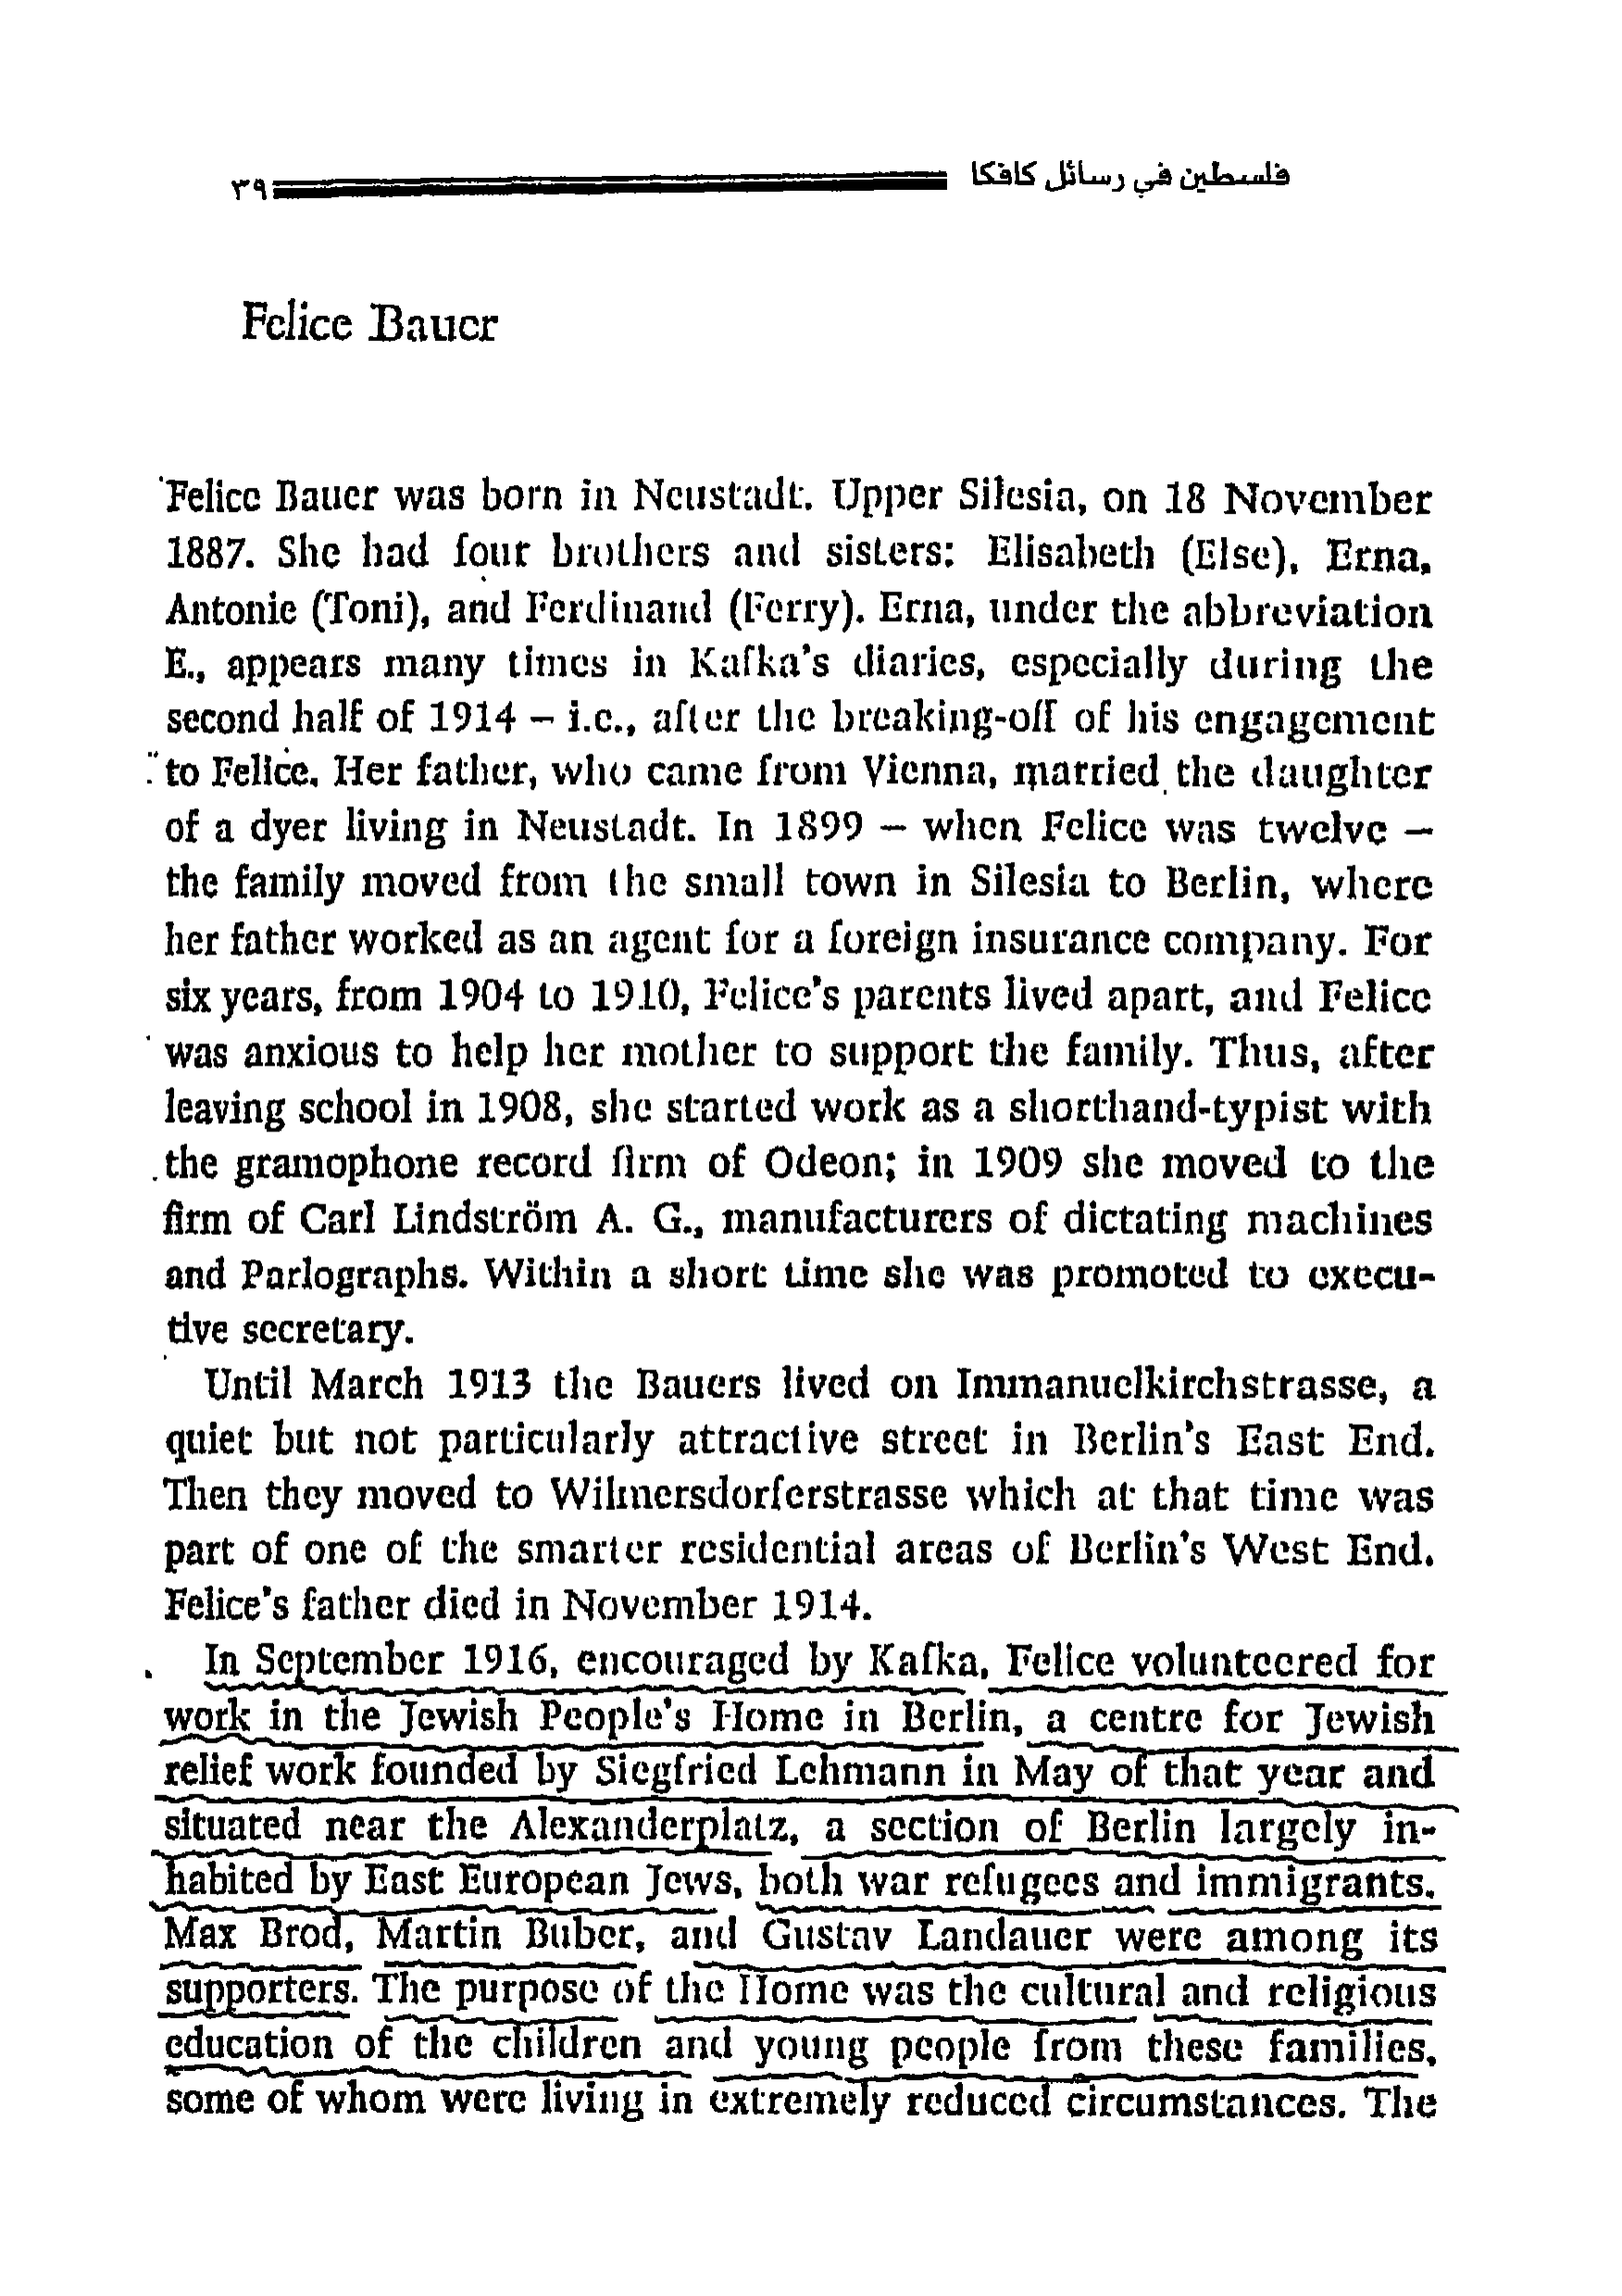 فلسطين في رسائل كافكا ٣٩
Felice Bauer
Felice Bauer was born in Neustadt, Upper Silesia, on 18 November
1887. She had four brothers and sisters: Elisabeth (Else), Erna,
Antonie (Toni), and Ferdinand (Ferry). Erna, under the abbreviation
E., appears many times in Kafka's diaries, especially during the
second half of 1914 – i.e., after the breaking-off of his engagement
to Felice. Her father, who came from Vienna, married the daughter
of a dyer living in Neustadt. In 1899 – when Felice was twelve –
the family moved from the small town in Silesia to Berlin, where
her father worked as an agent for a foreign insurance company. For
six years, from 1904 to 1910, Felice's parents lived apart, and Felice
was anxious to help her mother to support the family. Thus, after
leaving school in 1908, she started work as a shorthand-typist with
the gramophone record firm of Odeon; in 1909 she moved to the
firm of Carl Lindström A. G., manufacturers of dictating machines
and Parlographs. Within a short time she was promoted to execu-
tive secretary.
Until March 1913 the Bauers lived on Immanuelkirchstrasse, a
quiet but not particularly attractive street in Berlin's East End.
Then they moved to Wilmersdorferstrasse which at that time was
part of one of the smarter residential areas of Berlin's West End.
Felice's father died in November 1914.
In September 1916, encouraged by Kafka, Felice volunteered for
work in the Jewish People's Home in Berlin, a centre for Jewish
relief work founded by Siegfried Lehmann in May of that year and
situated near the Alexanderplatz, a section of Berlin largely in-
habited by East European Jews, both war refugees and immigrants.
Max Brod, Martin Buber, and Gustav Landauer were among its
supporters. The purpose of the Home was the cultural and religious
education of the children and young people from these families,
some of whom were living in extremely reduced circumstances. The